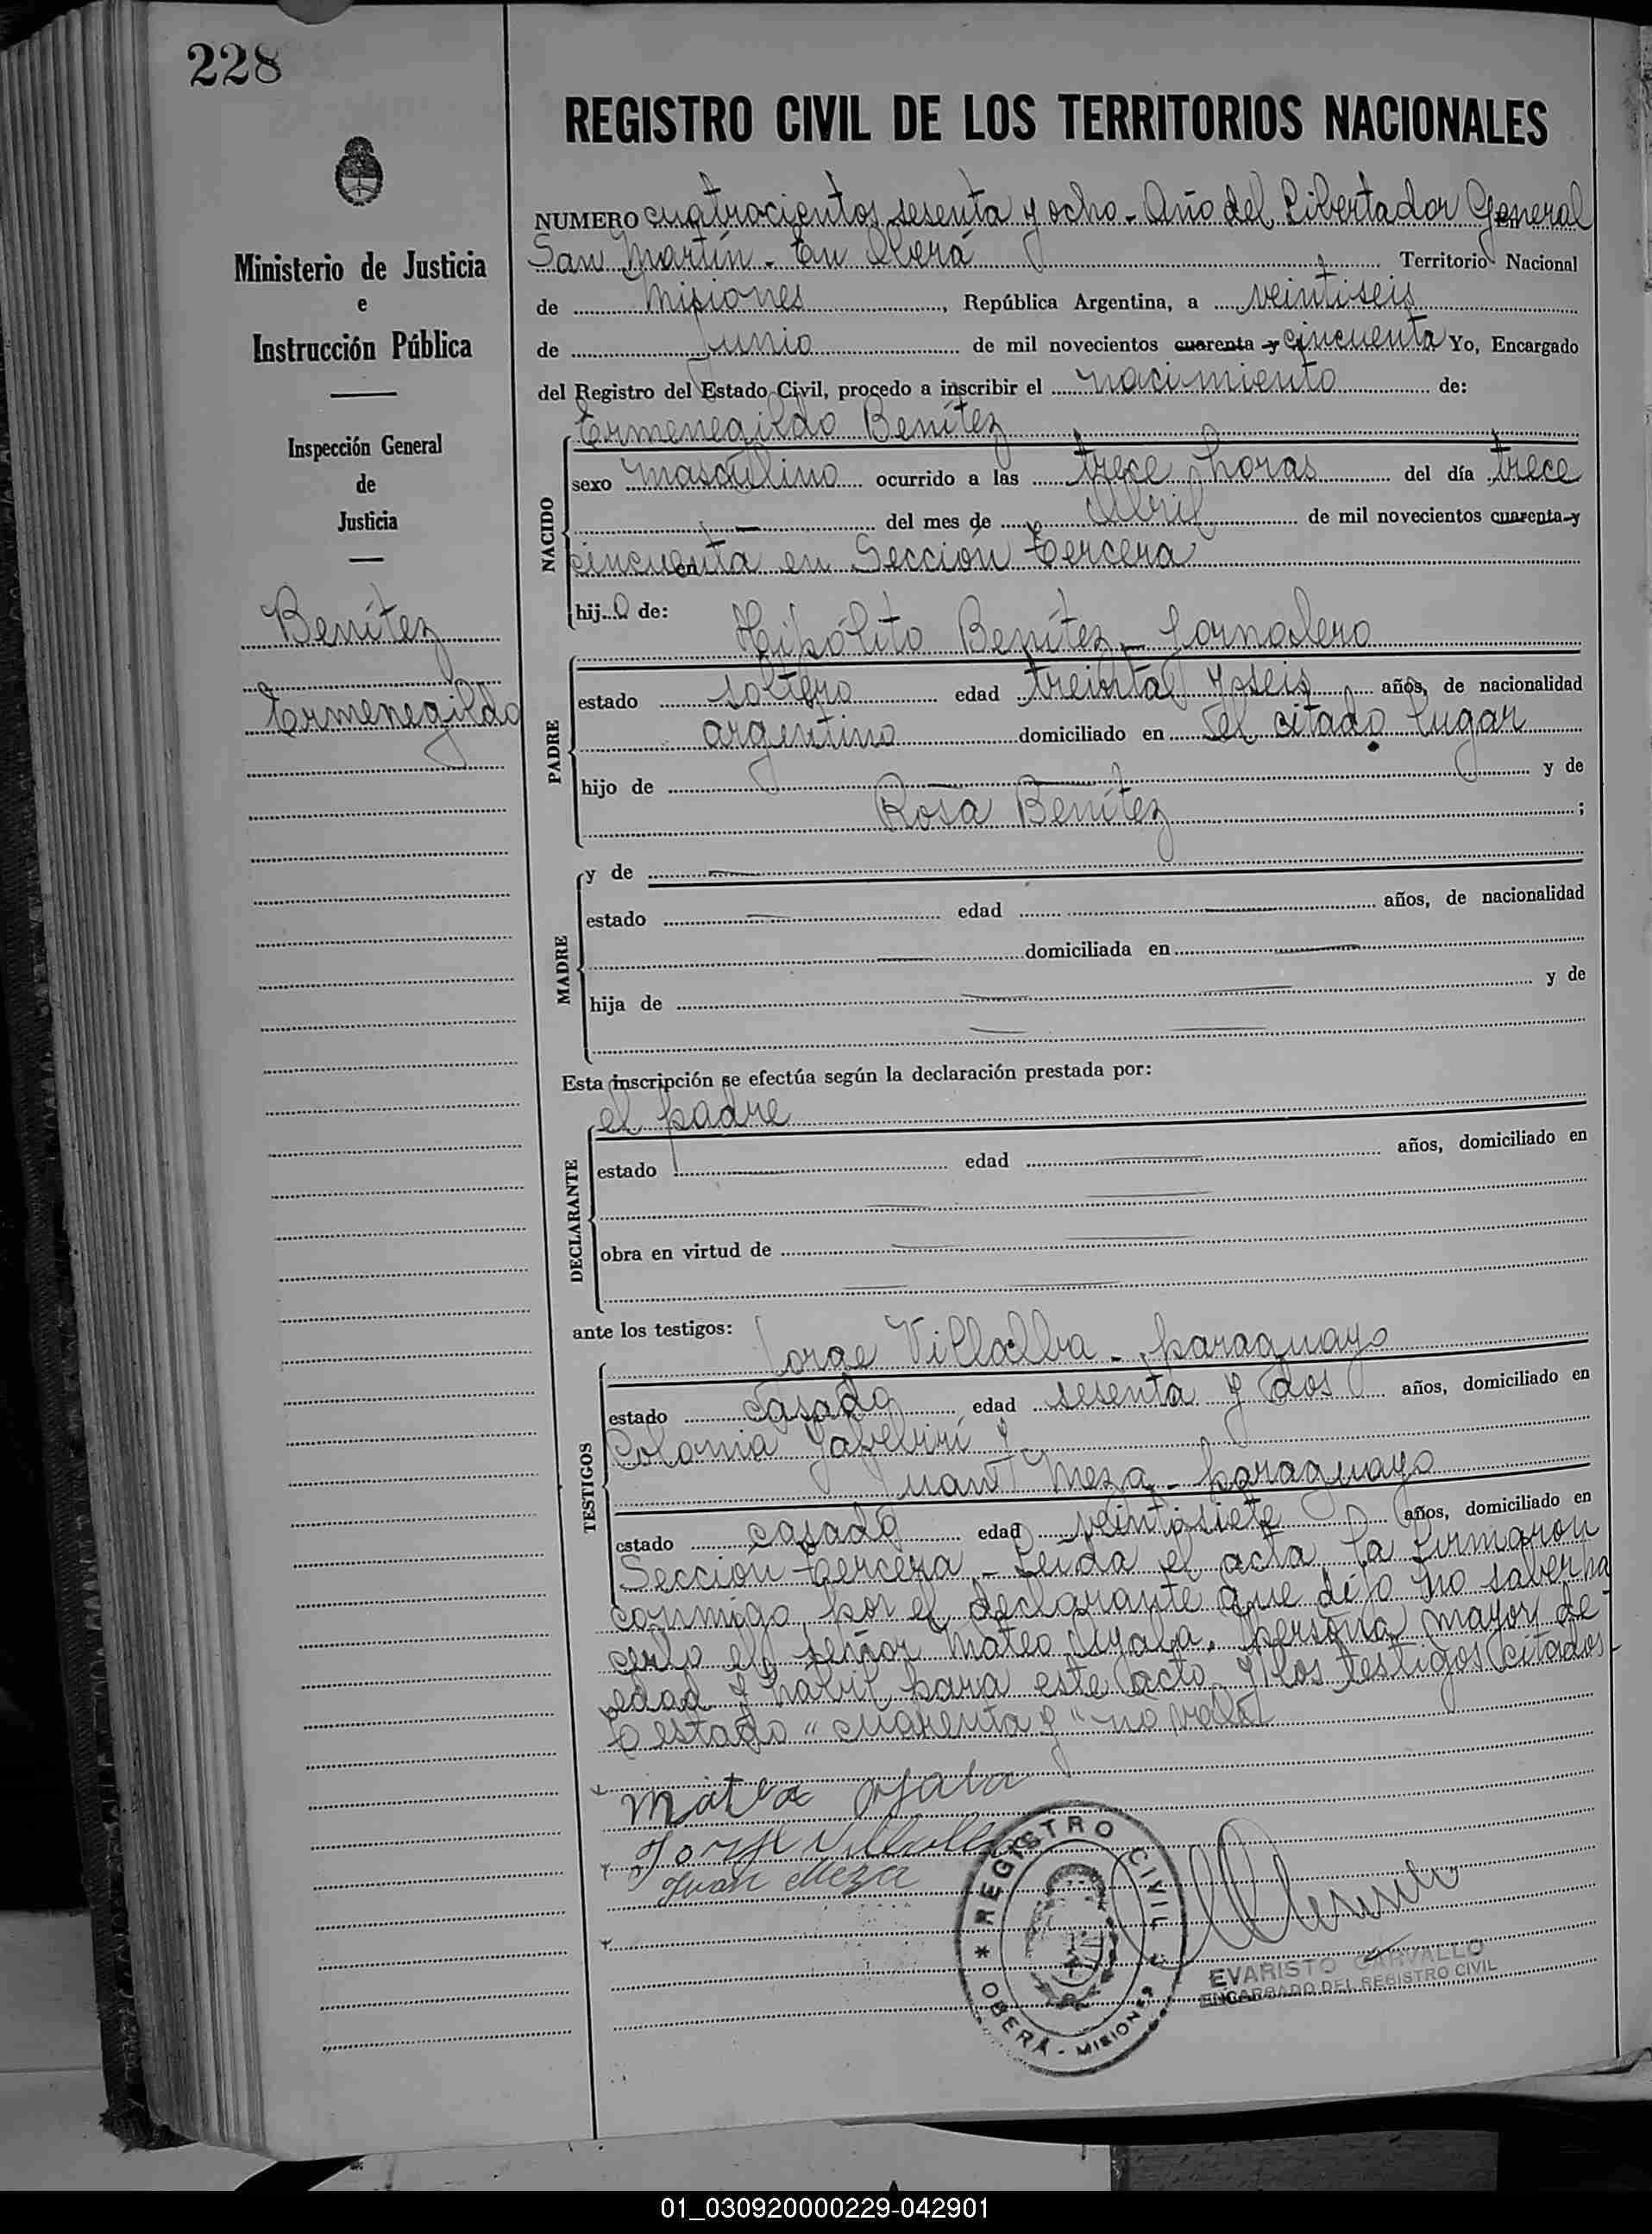 228
REGISTRO CIVIL DE LOS TERRITORIOS NACIONALES
NUMERO cuatrocientos sesenta y ocho - Año del Libertador General
San Martín - En Oberá Territorio Nacional
de Misiones, República Argentina, a veintiseis
de Junio de mil novecientos cuarenta y cincuenta Yo, Encargado
del Registro del Estado Civil, procedo a inscribir el nacimiento de:
Ermenegildo Benítez
NACIDO
sexo masculino ocurrido a las trece horas del día trece
del mes de Abril de mil novecientos cuarenta y
cincuenta en en Sección tercera
hijo de: Hipólito Benítez - Jornalero
PADRE
estado soltero edad treinta y seis años, de nacionalidad
argentino domiciliado en el citado lugar
hijo de y de
Rosa Benítez ;
MADRE
y de
estado edad años, de nacionalidad
domiciliada en
hija de y de
Esta inscripción se efectúa según la declaración prestada por:
el padre
DECLARANTE
estado edad años, domiciliado en
obra en virtud de
ante los testigos: Jorge Villalba - paraguayo
TESTIGOS
estado casado edad sesenta y dos años, domiciliado en
Colonia Yabebirí y
Juan Meza - paraguayo
estado casado edad veintisiete años, domiciliado en
Sección tercera - Leída el acta la firmaron
conmigo, por el declarante que dijo no saber ha
cerlo el señor Mateo Ayala, persona mayor de
edad y habil para este acto y los testigos citados
Testado "cuarenta y" no vale
Mateo Ayala
Jorge Villalba
Juan Meza
Ministerio de Justicia
e
Instrucción Pública
Inspección General
de
Justicia
Benítez
Ermenegildo
* REGISTRO CIVIL * OBERÁ - MISIONES
EVARISTO CARVALLO
ENCARGADO DEL REGISTRO CIVIL
01_030920000229-042901